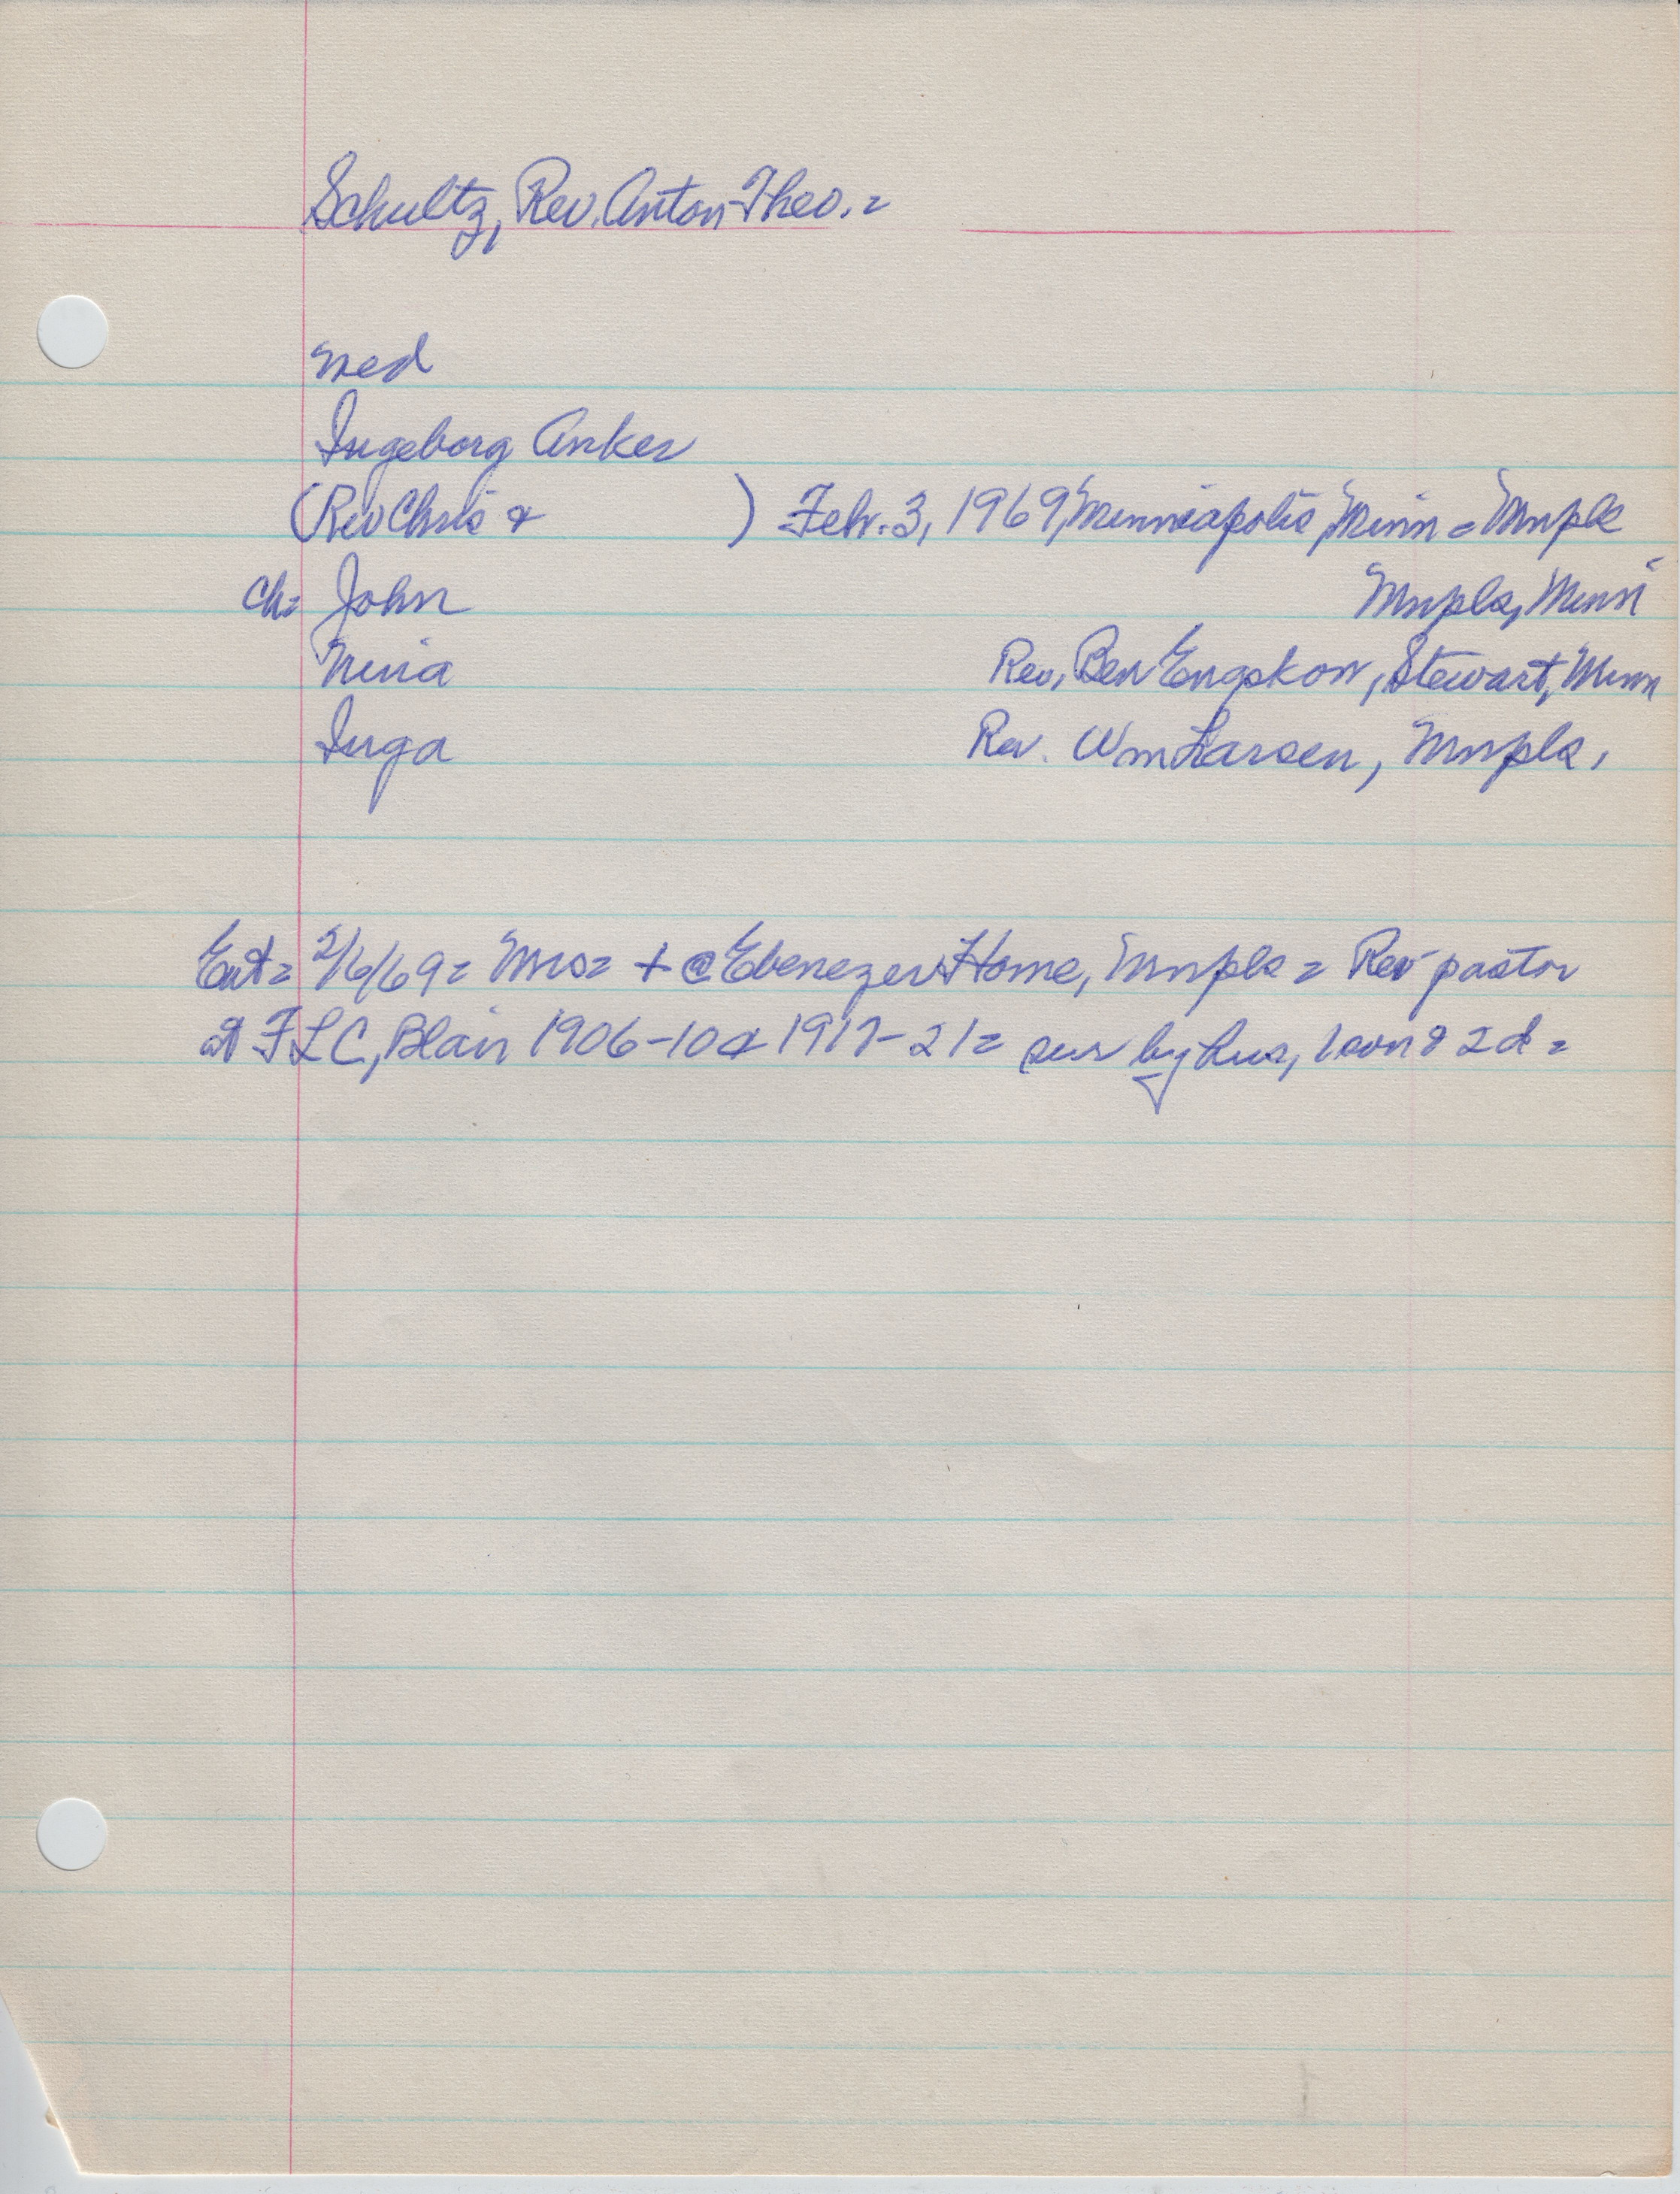 Schultz, Rev. Anton Theo. =
med
Ingeborg Anker
(Rev Chris & ) Feb. 3, 1969, Minneapolis, Minn = Mnpls
Ch= John Mnpls, Minn
Nina Rev. Ben Engskow, Stewart, Minn
Inga Rev. Wm Larsen, Mnpls,
Ent= 2/6/69= Mrs= + @ Ebenezer Home, Mnpls = Rev pastor
at FLC, Blair 1906-10 & 1917-21= sur by hus, 1 son & 2 d =